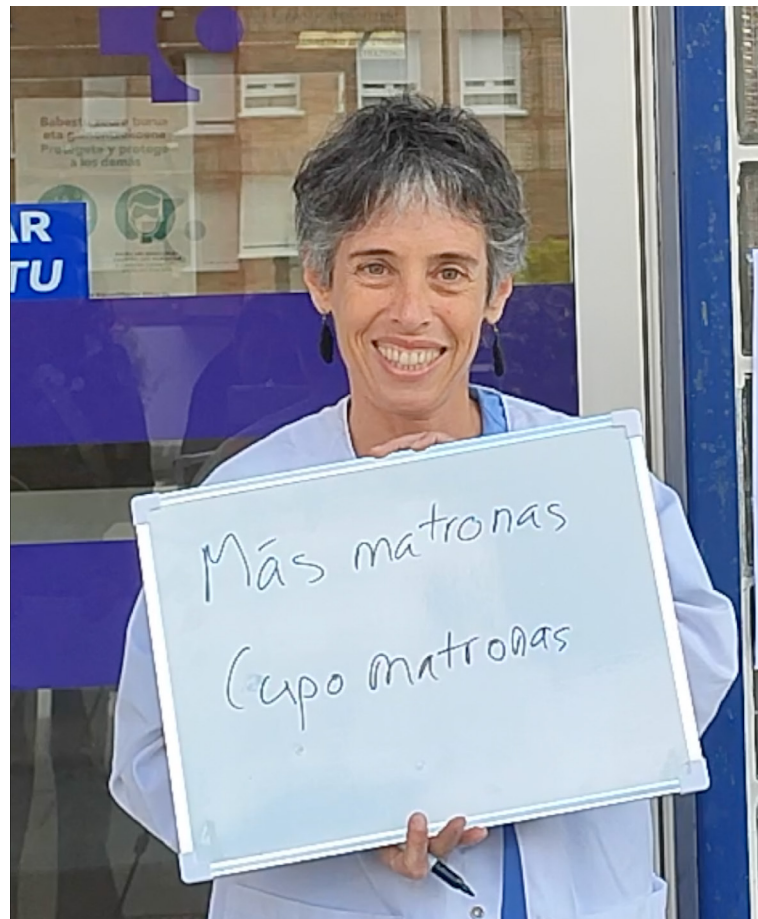 AR
TU
Babesti zure burua
eta gainontzekoena
Protégete y protege
a los demás
Más matronas
Cupo matronas